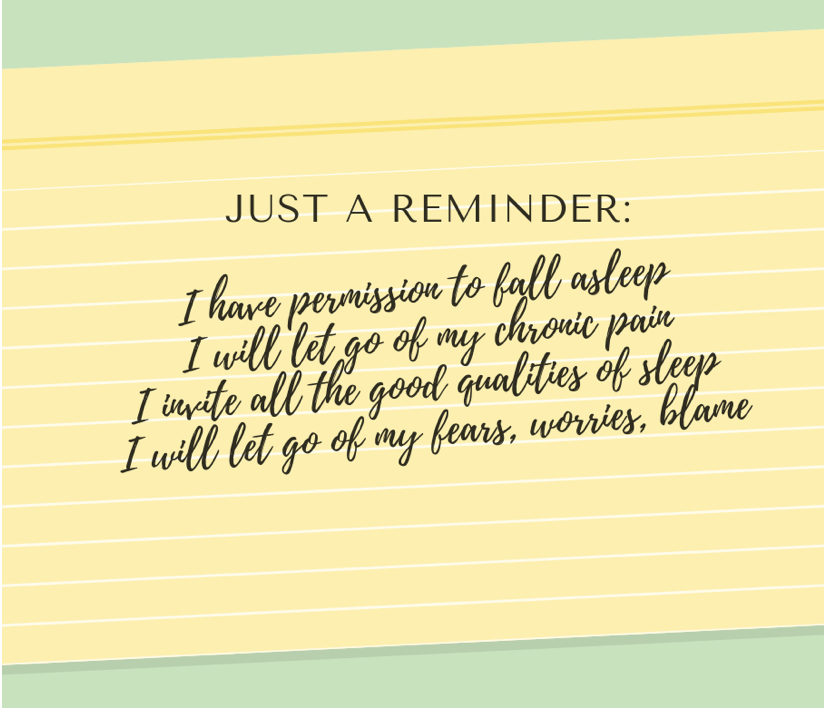 JUST A REMINDER:
I have permission to fall asleep
I will let go of my chronic pain
I invite all the good qualities of sleep
I will let go of my fears, worries, blame